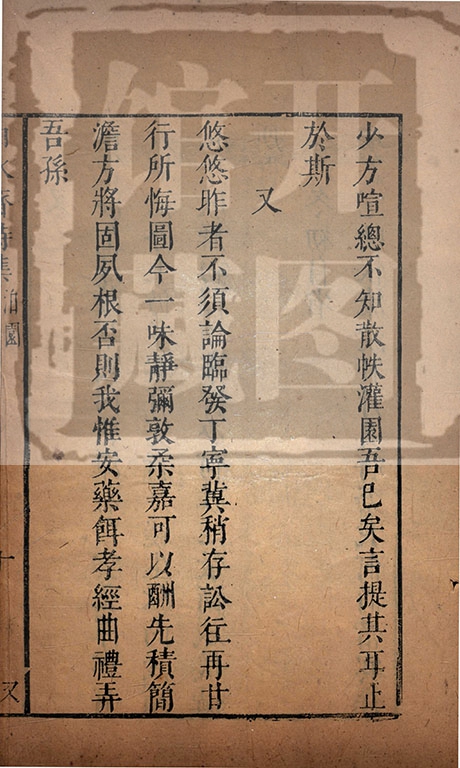 少方喧總不知散帙灌園吾已矣言提其耳止
於斯
又
悠悠昨者不須論臨發丁寧冀稍存訟往再甘
行所悔圖今一味靜彌敦柔嘉可以酬先積簡
澹方將固夙根否則我惟安藥餌孝經曲禮弄
吾孫
開圖
館藏